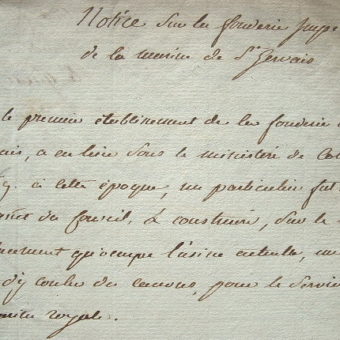 Notice sur la fonderie Impé
de la marine de St Gervais
le premier établissement de la fonderie
ais, a eu lieu sous le ministère de Col
à cette époque, un particulier fut
du Conseil, à construire, sur le
lacement qu'occupe l'usine actuelle, un
d'y couler des canons, pour le servi
royale.